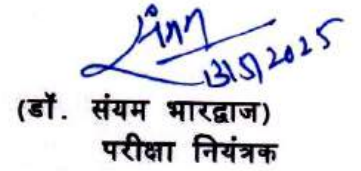 13/5/2025
(डॉ. संयम भारद्वाज)
परीक्षा नियंत्रक